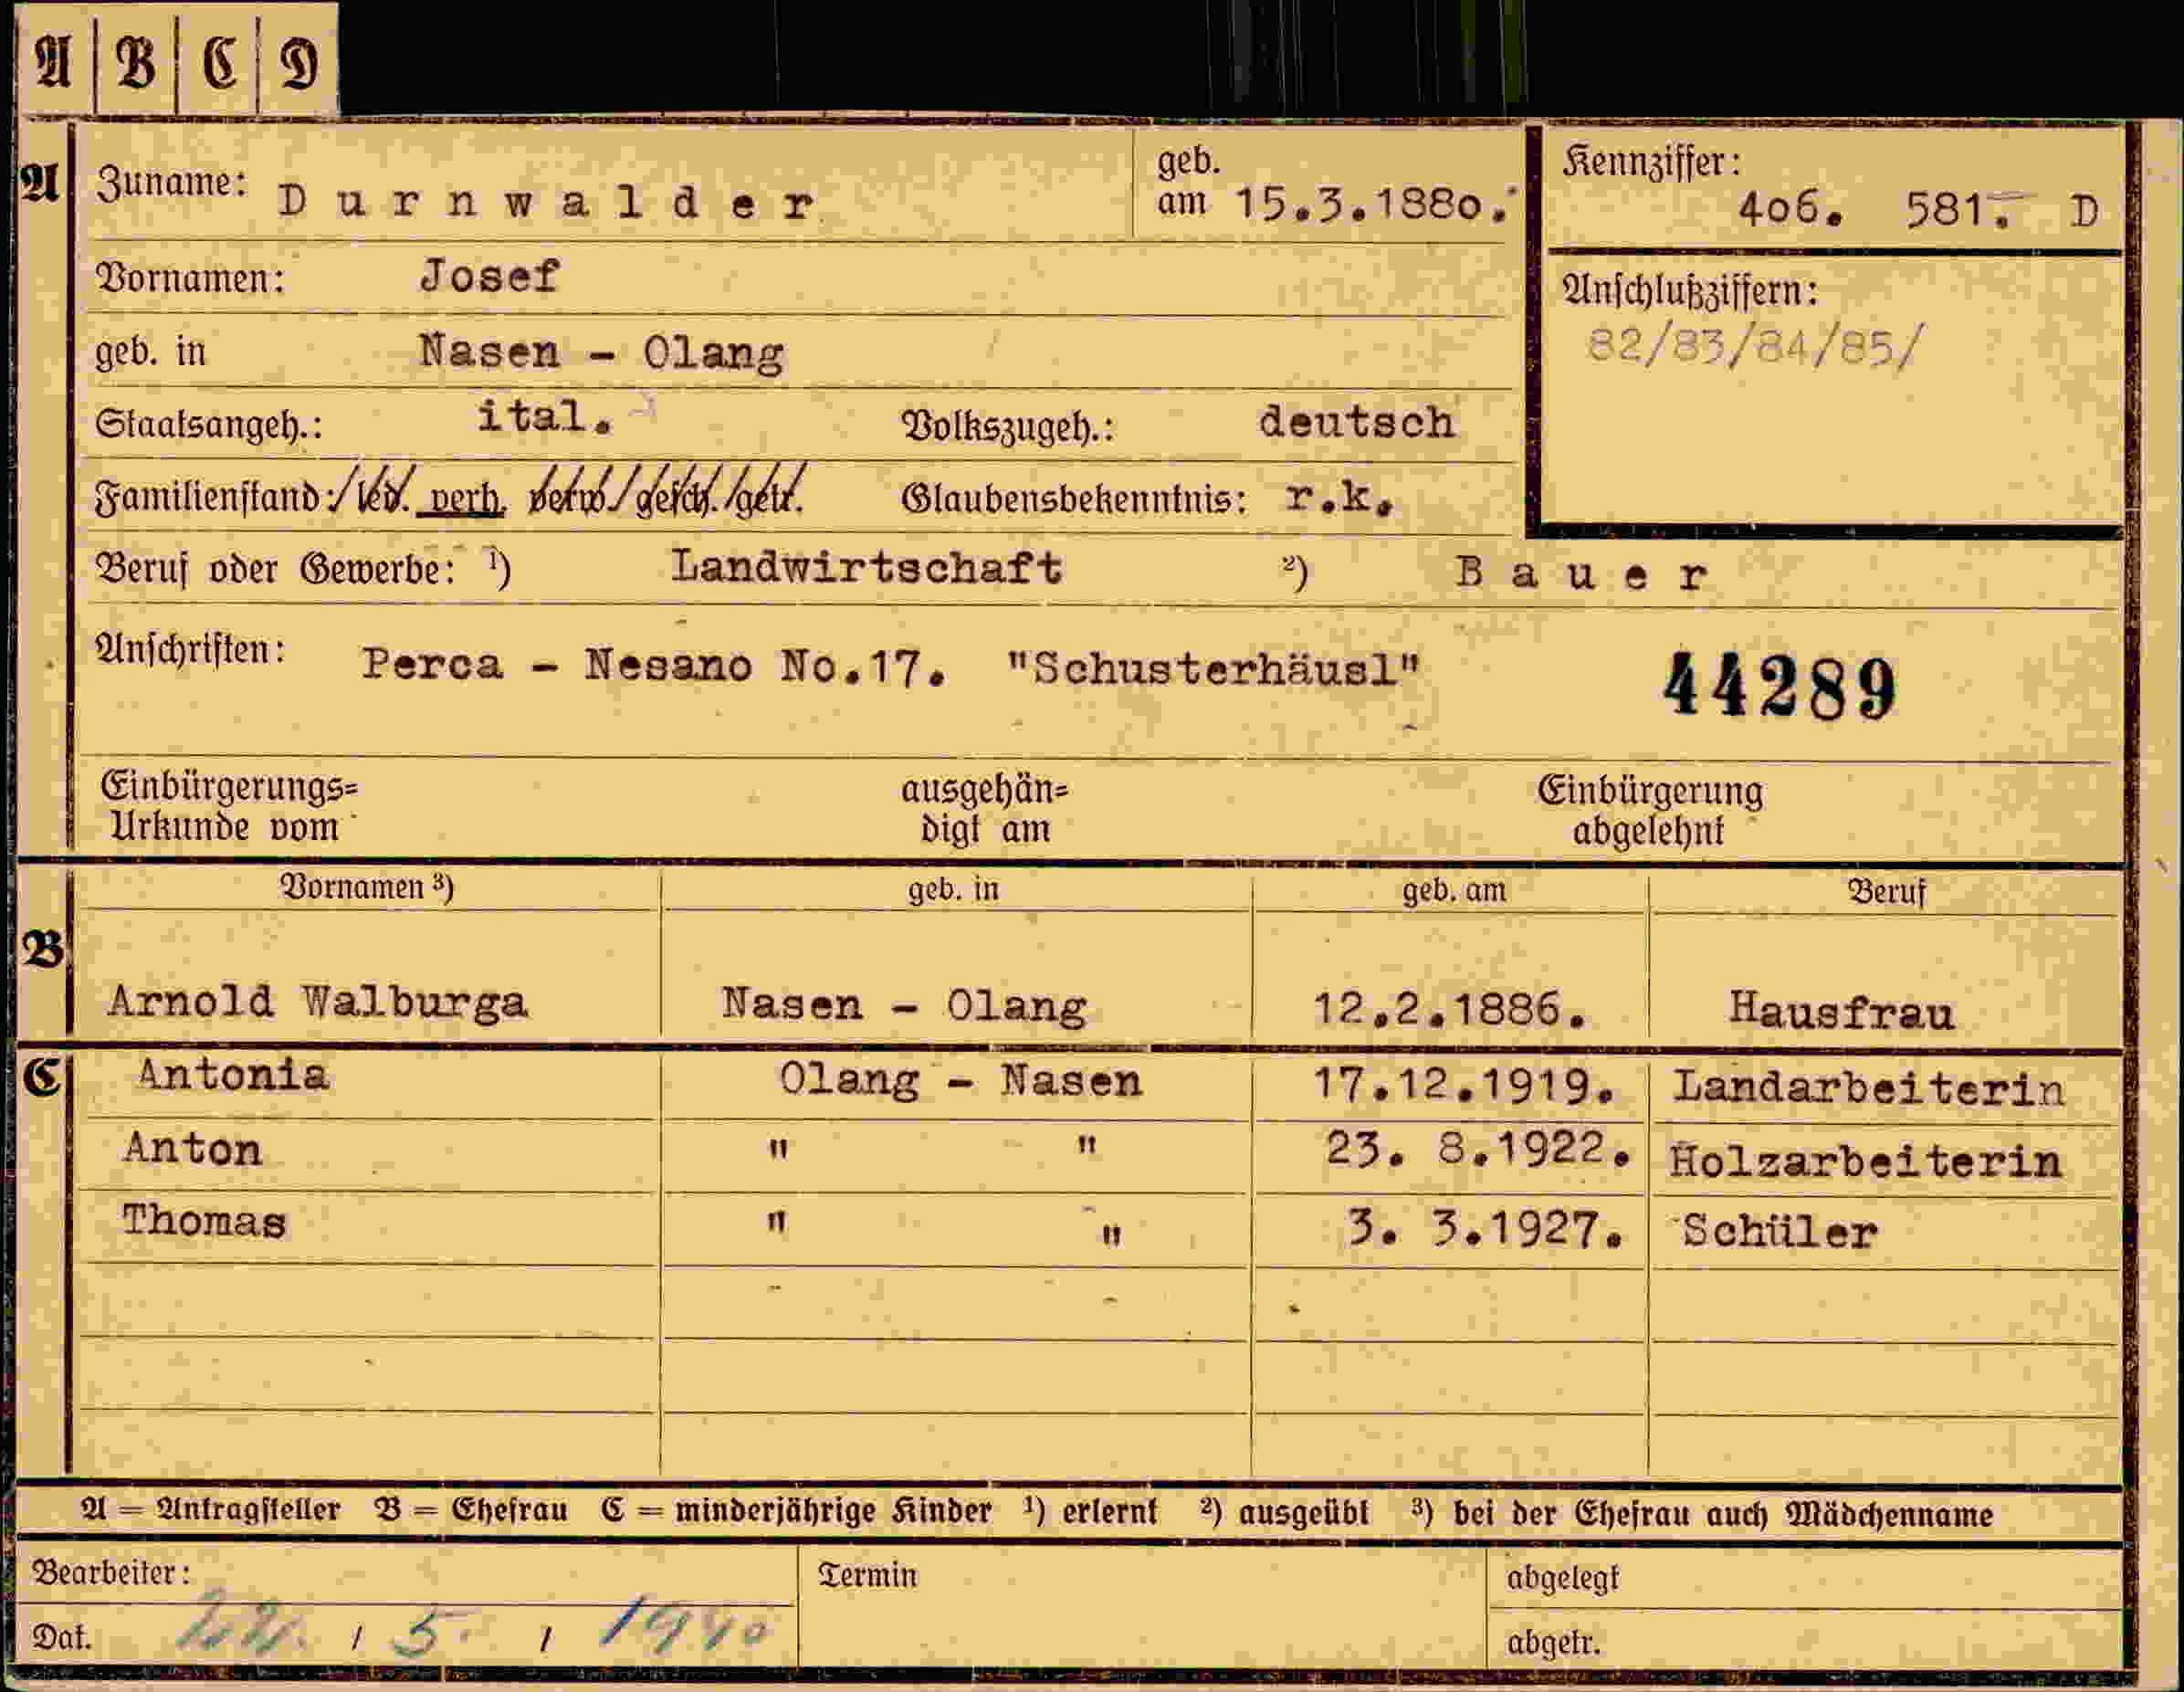 A B C D
A Zuname: Durnwalder geb. am 15.3.1880. Kennziffer: 406. 581. D
Vornamen: Josef
Anschlußziffern:
82/83/84/85/
geb. in Nasen - Olang
Staatsangeh.: ital. Volkszugeh.: deutsch
Familienstand: led. verh. verw. gesch. getr. Glaubensbekenntnis: r.k.
Beruf oder Gewerbe: ¹) Landwirtschaft ²) Bauer
Anschriften: Perca - Nesano No.17. "Schusterhäusl" 44289
Einbürgerungs= ausgehän= Einbürgerung
Urkunde vom digt am abgelehnt
Vornamen ³) geb. in geb. am Beruf
B
Arnold Walburga Nasen - Olang 12.2.1886. Hausfrau
C Antonia Olang - Nasen 17.12.1919. Landarbeiterin
Anton " " 23. 8.1922. Holzarbeiterin
Thomas " " 3. 3.1927. Schüler
A = Antragsteller B = Ehefrau C = minderjährige Kinder ¹) erlernt ²) ausgeübt ³) bei der Ehefrau auch Mädchenname
Bearbeiter: Termin abgelegt
Dat. 22. / 5. / 1940 abgetr.